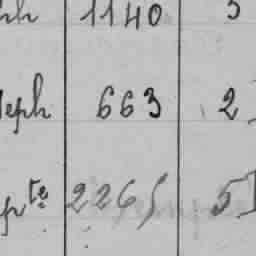 1140 5
eph 663 2
pte 2265 5